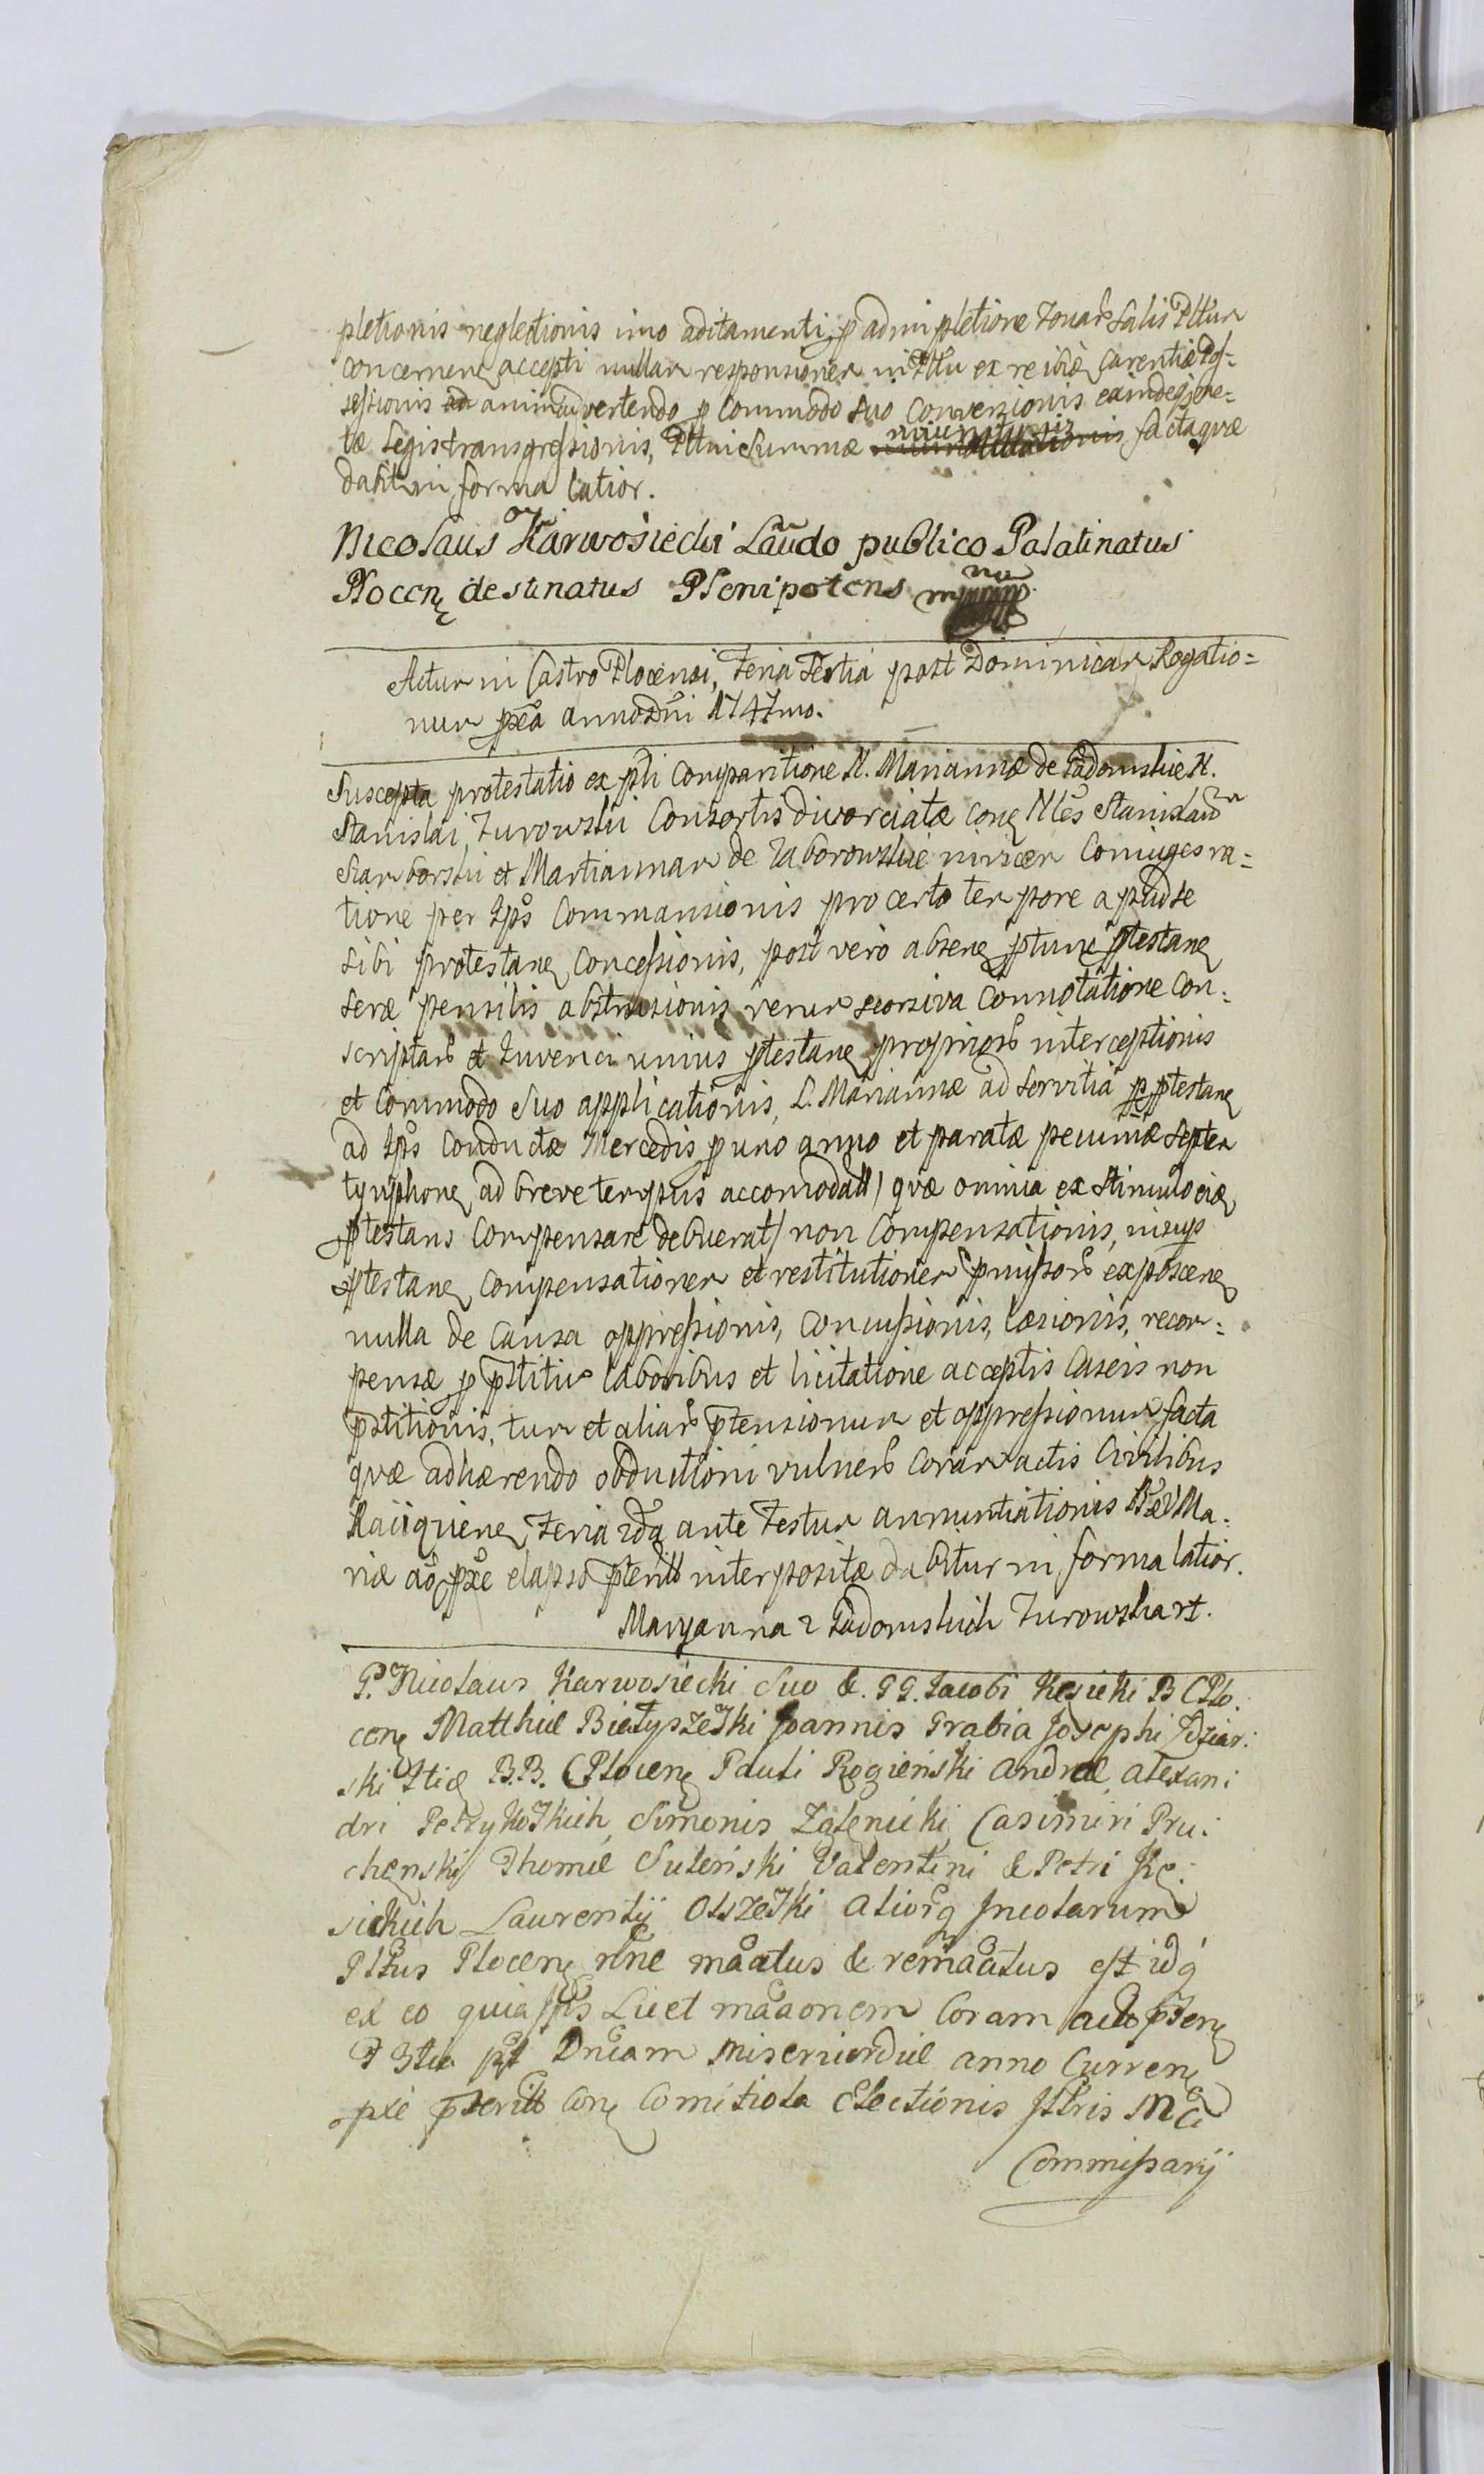 pletionis neglectionis imo aditamenti p adimpletione Tonar Salis Plttur
concernen accepti nullam responsionem in Plttu ex re ibid Carentiæ Pos=
sessionis ad animadvertendo p Commodo suo Conversionis exindeq
tæ Legis transgressionis, Summæ factaquæ
dabit in forma latior.
Nicolaus Karwosiecki Laudo publico Palatinatus
Plocen destinatus Plenipotens mp
Actum in Castro Plocensi, Feria Tertia post Dominicam Rogatio=
num pxa anno Dni 1747mo.
Suscepta protestatio ex pti Comparitione N. Mariannæ de Gadomskie N.
Stanislai Turowski Consortis divorciatæ con Nles Stanislaum
Skarborski et Martiannam de Zaborowskie invicem Coniuges ra=
tione per Ips Commansionis pro certo tempore apud se
sibi protestan Concessionis, post vero absen ptunc ptestan
seræ pensilis abstrusionis rerum seorsiva Connotatione Con=
scriptar et Iuvenci unius ptestan proprior interceptionis
et Commodo suo applicationis, L. Mariannæ ad servitia p ptestan
ad Ips Conductæ Mercedis p uno anno et paratæ pecuniæ septem
tynphon ad breve tempus accomodatt) quæ omnia ex stimulo
ptestans Compensare debuerat) non Compensationis, insup
ptestan Compensationem et restitutionem pmissor exposcen
nulla de Causa oppressionis, Concussionis, læsionis, recom=
pensæ p pstitis laboribus et licitatione acceptis Caseis non
pstitionis, tum et aliar ptensionum et oppressionum facta
quæ adhærendo obductioni vulner Coram actis Civilibus
Raciąguen Feria 2da ante Festum annuntiationis B V Ma=
riæ ao pxe elapso pteritt interpositæ dabitur in forma latior.
Maryanna z Gadomskich Turowska rt.
G. Nicolaus Karwosiecki Suo & GG. Iacobi Kęsicki B C Plo:
cen Matthiæ Białyszeski Joannis Grabia Josephi Dziar:
ski B.B. C Plocen Pauli Rogieński Andreæ Alexan:
dri Petrykoskich, Simonis Zaleniecki, Casimiri Pru:
chenski Thomæ Suleński Valentini & Petri Kę:
sickich Laurentij Olszeski aliorq Incolarum
Plttus Plocen nne maatus & remaatus est idq
ex eo quia Ips Liuet maaonem Coram actis pten
F 3tia pt Dncam Misericordiæ anno Curren
pxe pteritt Con Comitiola Electionis Illris M
Commissarij